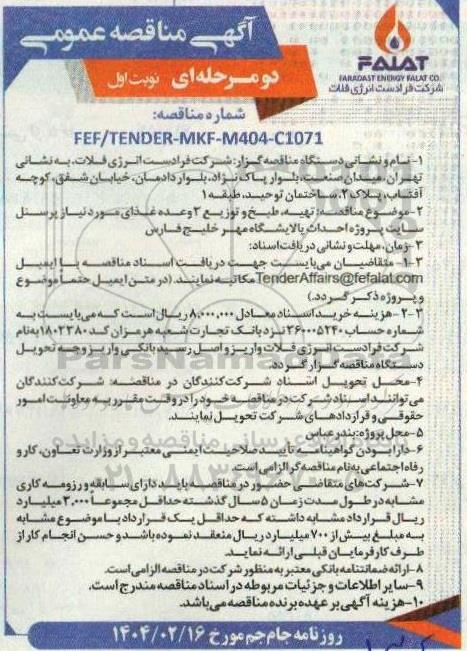 آگهی مناقصه عمومی
دو مرحله‌ای نوبت اول
FALAT
FARADAST ENERGY FALAT CO.
شرکت فرادست انرژی فلات
شماره مناقصه:
FEF/TENDER-MKF-M404-C1071
۱- نام و نشانی دستگاه مناقصه گزار: شرکت فرادست انرژی فلات، به نشانی
تهران میدان صنعت، بلوار پاک نژاد، بلوار دادمان، خیابان شفق، کوچه
آفتاب، پلاک ۲، ساختمان توحید، طبقه ۱
۲- موضوع مناقصه: تهیه، طبخ و توزیع ۳ وعده غذای مورد نیاز پرسنل
سایت پروژه احداث پالایشگاه مهر خلیج فارس
۳- زمان، مهلت و نشانی دریافت اسناد:
۳-۱- متقاضیان می‌بایست جهت دریافت اسناد مناقصه با ایمیل
TenderAffairs@fefalat.com مکاتبه نمایند. (در متن ایمیل حتماً موضوع
و پروژه ذکر گردد.)
۳-۲- هزینه خرید اسناد معادل ۸,۰۰۰,۰۰۰ ریال است که می‌بایست به
شماره حساب ۲۶۰۰۰۵۲۴۰ نزد بانک تجارت شعبه هرمزان کد ۱۸۰۲۳۸۰ به نام
شرکت فرادست انرژی فلات واریز و اصل رسید بانکی واریز وجه تحویل
دستگاه مناقصه گزار گردد.
۴- محل تحویل اسناد شرکت کنندگان در مناقصه: شرکت کنندگان
می‌توانند اسناد شرکت در مناقصه خود را در وقت مقرر به معاونت امور
حقوقی و قراردادهای شرکت تحویل نمایند.
۵- محل پروژه: بندرعباس
۶- دارا بودن گواهینامه تأیید صلاحیت ایمنی معتبر از وزارت تعاون، کار و
رفاه اجتماعی به نام مناقصه گر الزامی است.
۷- شرکت‌های متقاضی حضور در مناقصه باید دارای سابقه و رزومه کاری
مشابه در طول مدت زمان ۵ سال گذشته حداقل مجموعاً ۳,۰۰۰ میلیارد
ریال قرارداد مشابه داشته که حداقل یک قرارداد با موضوع مشابه
به مبلغ بیش از ۷۰۰ میلیارد ریال منعقد نموده باشد و حسن انجام کار از
طرف کارفرمایان قبلی ارائه نماید.
۸- ارائه ضمانتنامه بانکی معتبر به منظور شرکت در مناقصه الزامی است.
۹- سایر اطلاعات و جزئیات مربوطه در اسناد مناقصه مندرج است.
۱۰- هزینه آگهی بر عهده برنده مناقصه می‌باشد.
روزنامه جام جم مورخ ۱۴۰۴/۰۲/۱۶